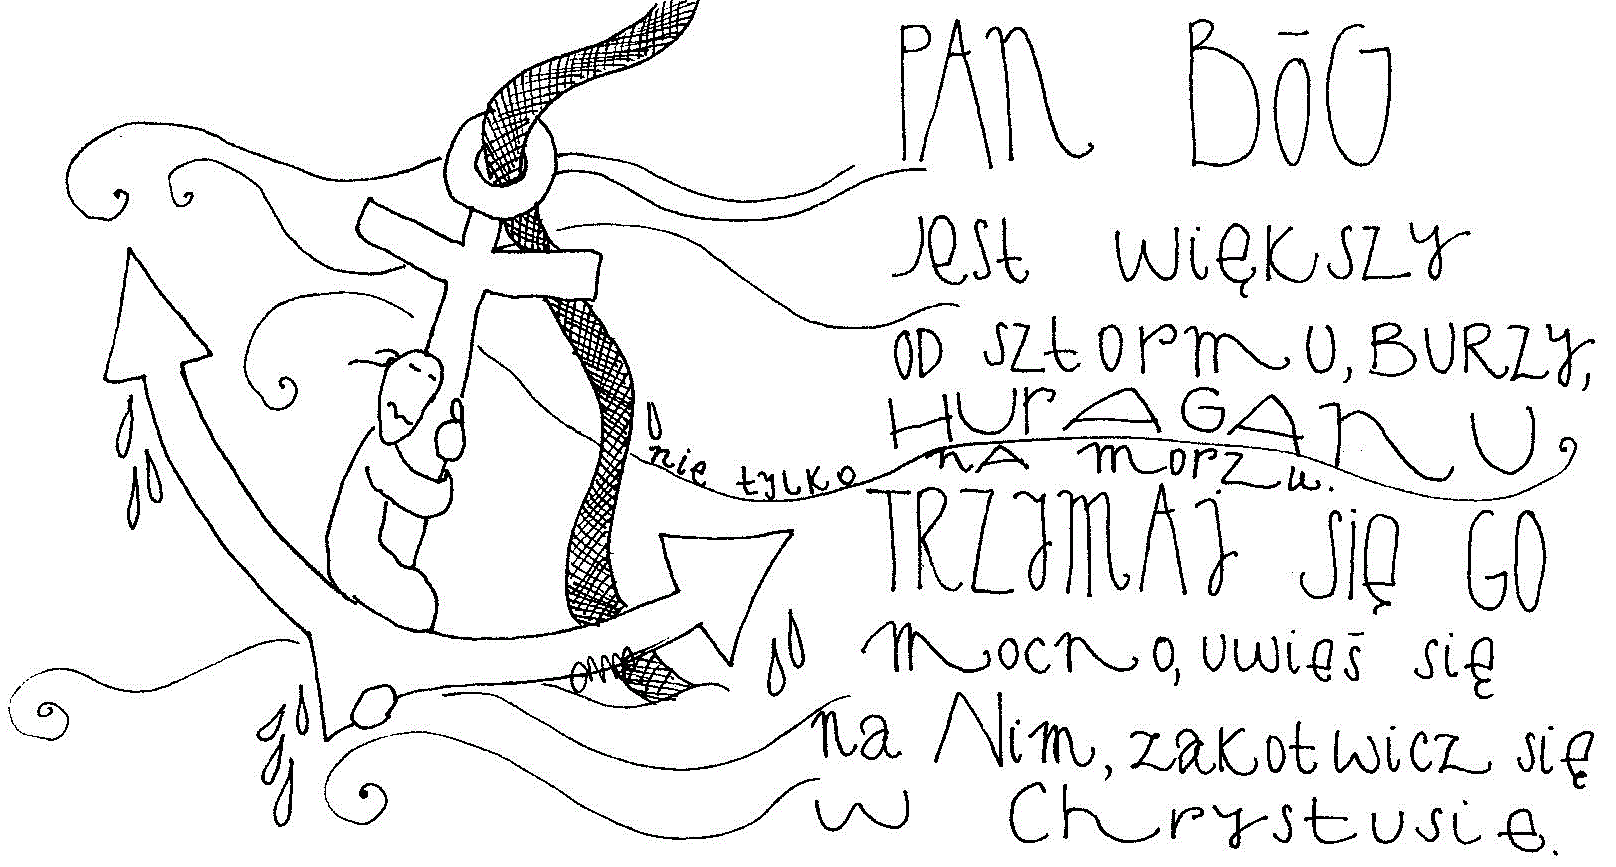 PAN BÓG
jest większy
od sztormu, BURZY,
HURAGANU
nie tylko na morzu.
TRZYMAJ SIĘ GO
mocno, uwieś się
na Nim, zakotwicz się
w Chrystusie.